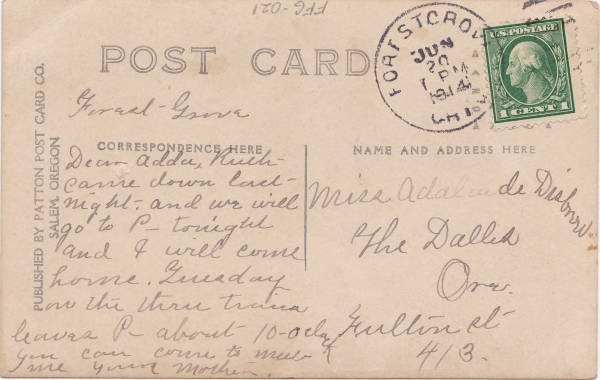 FFG-021
POST CARD
FOREST GROVE
JUN
20
1 PM
1914
U.S. POSTAGE
1 CENT 1
Forest-Grove
CORRESPONDENCE HERE
NAME AND ADDRESS HERE
PUBLISHED BY PATTON POST CARD CO.
SALEM, OREGON
Dear Adda, Ruth
came down last
night. and we will
go to P- tonight
and I will come
home. Tuesday
on the thru train
leaves P- about 10-o
you can come to meet
me your Mother.
Miss
The Dalles
Ore.
Fulton st
413.